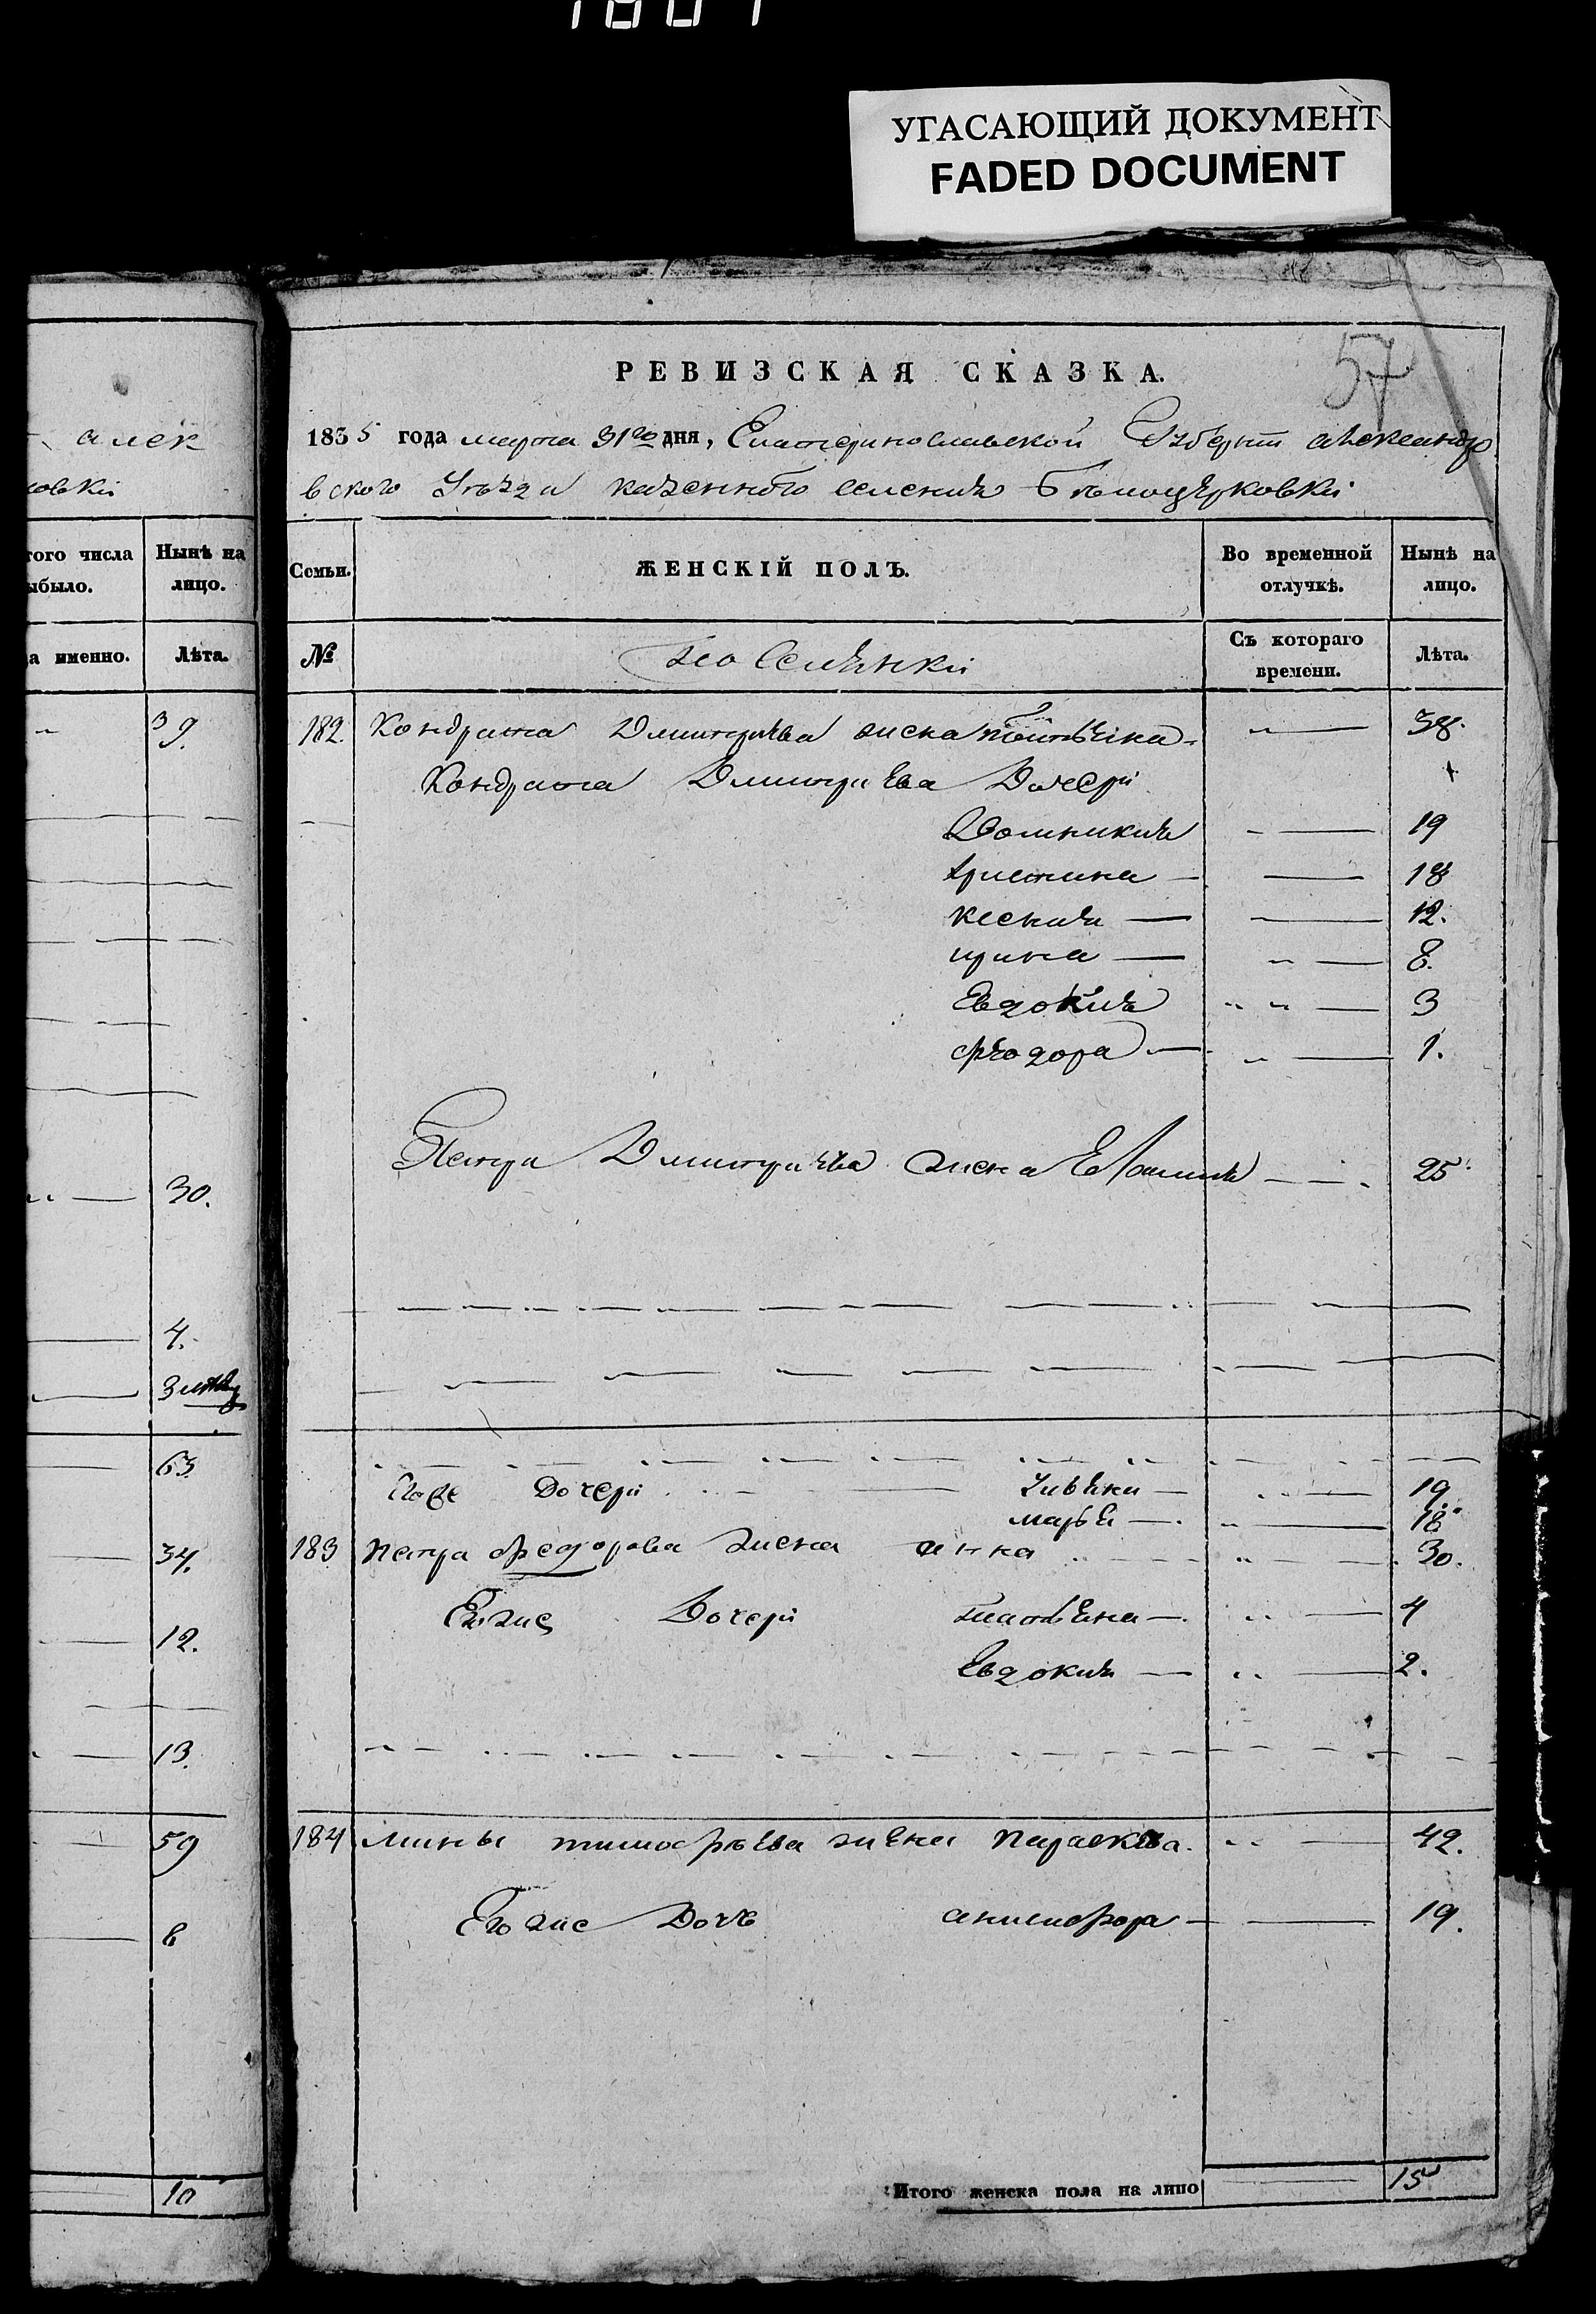 1801
УГАСАЮЩИЙ ДОКУМЕНТ
FADED DOCUMENT
алек
ковкы
того числа
ыбыло.
Нынѣ на
лицо.
а именно.
Лѣта.
39.
30.
4.
3
63
34.
12.
13.
59
8
10
57
РЕВИЗСКАЯ СКАЗКА.
1835 года марта 31го дня, Екатеринославской Губерни александро
вского Уѣзда казенного селения Бѣлоцерковки
Семьи.
ЖЕНСКІЙ ПОЛЪ.
Во временной
отлучкѣ.
Нынѣ на
лицо.
№
Съ котораго
времени.
Лѣта.
182. Кондрата Дмитриева жена 38.
Кондрата Дмитриева Дочери
Домникия 19
христина 18
ксения 12.
ирина 8.
Евдокия 3
феодора 1.
Петра Дмитриева жена 25
Дочери 19.
марья 18
183 Петра Федорова жена анна 30.
Его же Дочери 4
Евдокия 2.
184 мины тимофѣева жена параскева 42.
Его же Дочь анисифора 19.
Итого женска пола на лицо 15